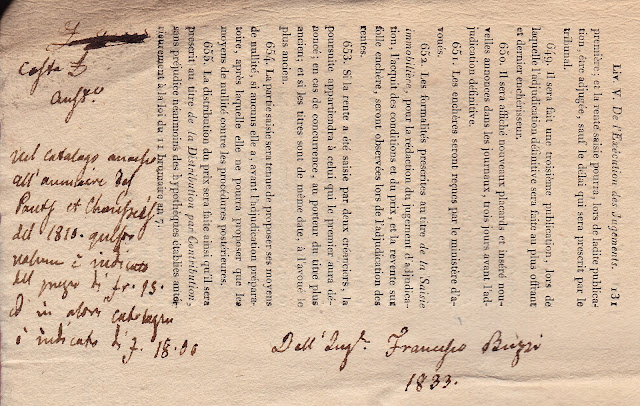 Liv. V. De l'Exécution des Jugements. 131
première; et la rente saisie pourra, lors de ladite publica-
tion, être adjugée, sauf le délai qui sera prescrit par le
tribunal.
649. Il sera fait une troisième publication, lors de
laquelle l'adjudication définitive sera faite au plus offrant
et dernier enchérisseur.
650. Il sera affiché nouveaux placards et inséré nou-
velles annonces dans les journaux, trois jours avant l'ad-
judication définitive.
651. Les enchères seront reçues par le ministère d'a-
voués.
652. Les formalités prescrites au titre de la Saisie
immobilière, pour la rédaction du jugement d'adjudica-
tion, l'acquit des conditions et du prix, et la revente sur
folle enchère, seront observées lors de l'adjudication des
rentes.
653. Si la rente a été saisie par deux créanciers, la
poursuite appartiendra à celui qui le premier aura dé-
noncé; en cas de concurrence, au porteur du titre plus
ancien; et si les titres sont de même date, à l'avoué le
plus ancien.
654. La partie saisie sera tenue de proposer ses moyens
de nullité, si aucuns elle a, avant l'adjudication prépara-
toire, après laquelle elle ne pourra proposer que les
moyens de nullité contre les procédures postérieures.
655. La distribution du prix sera faite ainsi qu'il sera
prescrit au titre de la Distribution par Contribution,
sans préjudice néanmoins des hypothèques établies anté-
rieurement à la loi du 11 brumaire an 7.
costa
nel catalago annesso
all'annuaire des
Ponts et Chaussées
del 1810 questo
volume è indicato
del prezzo di fr. 15.
ed in altro catalogo
è indicato di f. 18.00
Dell'Ing. Francesco Buzzi
1833.